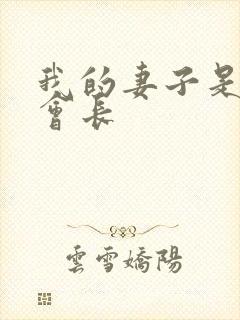 我的妻子是
會長
雲雪嬌陽